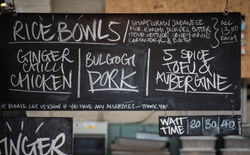 RICE BOWLS
ALL
13.00
EACH
GINGER
CHILLI
CHICKEN
BULGOGI
PORK
5 SPICE
TOFU &
AUBERGINE
* PLEASE LET US KNOW IF YOU HAVE ANY ALLERGIES - THANK YOU
WAIT
TIME
20
30
40
NGER